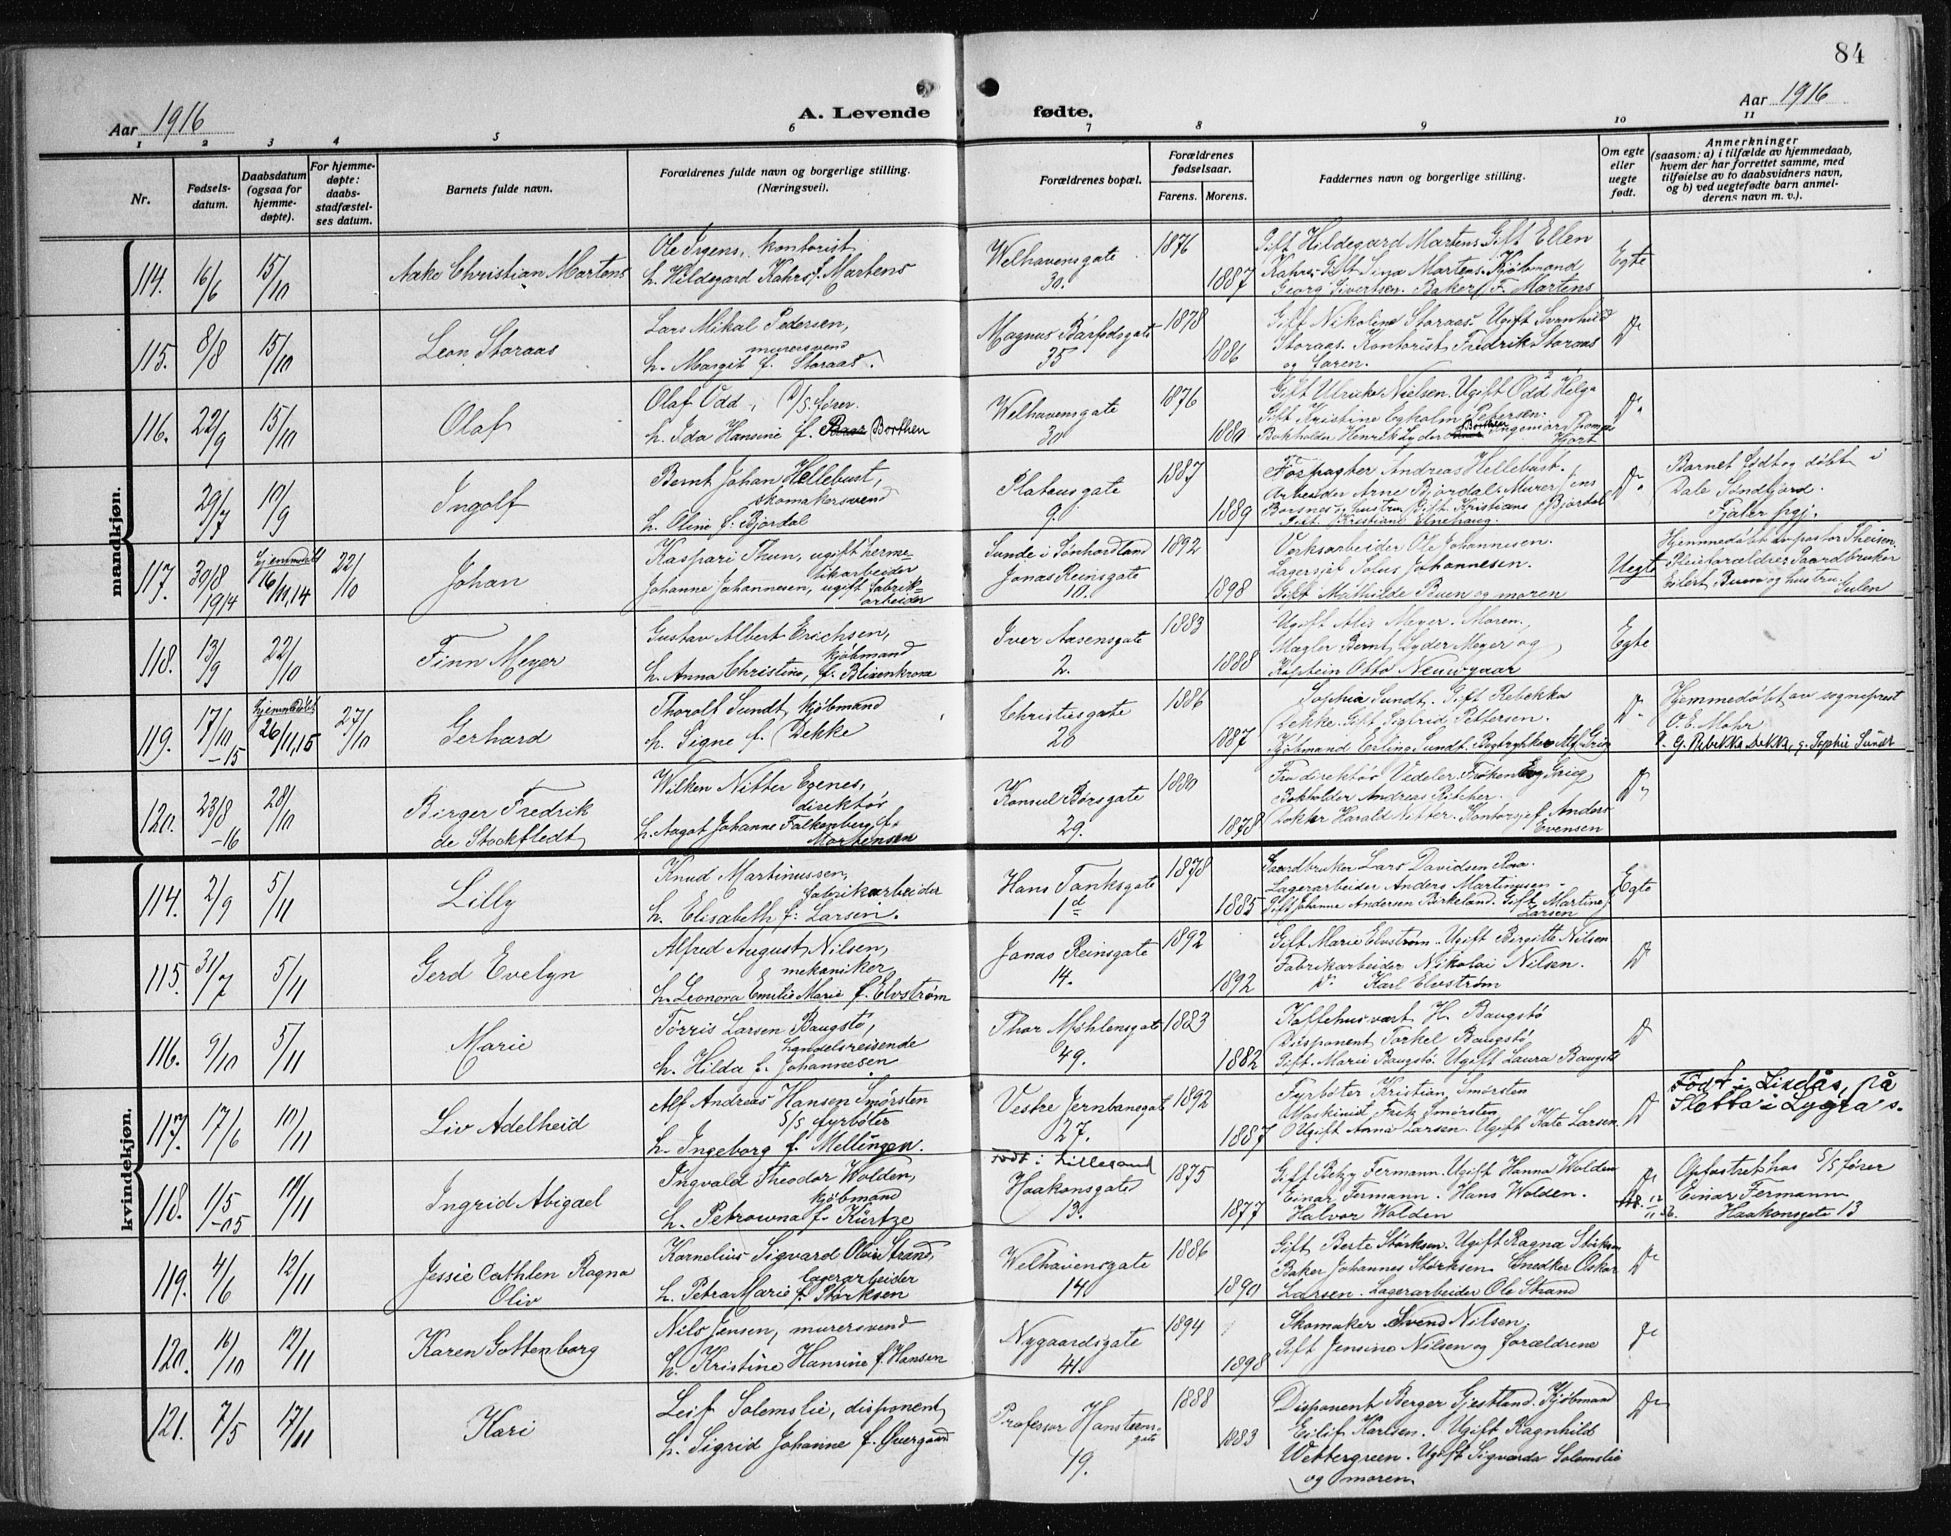 84
Aar 1916
A. Levende fødte.
Aar 1916
1 2 3 4 5 6 7 8 9 10 11
Nr.
Fødsels-
datum.
Daabsdatum
(ogsaa for
hjemme-
døpte).
For hjemme-
døpte:
daabs-
stadfæstel-
ses datum.
Barnets fulde navn.
Forældrenes fulde navn og borgerlige stilling.
(Næringsvei).
Forældrenes bopæl.
Forældrenes
fødselsaar.
Farens. Morens.
Faddernes navn og borgerlige stilling.
Om egte
eller
uegte
født.
Anmerkninger
(saasom: a) i tilfælde av hjemmedaab,
hvem der har forrettet samme, med
tilføielse av to daabsvidners navn,
og b) ved uegtefødte barn anmel-
derens navn m. v.).
mandkjøn.
114. 16/6 15/10
Aake Christian Martens
Ole Irgens, kontorist
h. Hildegard Kahrs f. Martens
Welhavensgate
30.
1876
1887
Gift Hildegard Martens. Gift Ellen
Kahrs. Gift Martens. Kjøbmand
Georg Sivertsen. Baker F. Martens
Egte
115. 8/8 15/10
Leon Storaas
Lars Mikal Pedersen,
murersvend
h. Margit f. Storaas.
Magnus Barfodsgate
35
1878
1886
Gift Nikoline Storaas. Ugift Svanhild
Storaas. Kontorist Fredrik Storaas
og faren.
Do
116. 22/9 15/10
Olaf
Olaf Odd, D/S. fører.
h. Ida Hansine f. Borthen
Welhavensgate
30
1876
1880
Gift Ulrikke Nielsen. Ugift Odd Helga
Gift Kristine Petersen.
Bokholder Henrik Lyder Borthen Ingeniør
Hjort
Do
29/7 17/9
Ingolf
Bernt Johan Hellebust,
skomakersvend
h. Oline f. Bjordal
Platousgate
9.
1887
1889
Forpagter Andreas Hellebust.
Arbeider Arne Bjordal. Murer Jens
Borsnes og hustru Gift Kristians Bjordal
Gift Kristiane
Do
Barnet født og døbt i
Dale Søndfjord.
Fjaler prgj.
117. 30/8 1914 Hjemmedøbt 16/11,14 22/10
Johan
Kaspari Thun, ugift herme-
tikarbeider
Johanne Johannesen, ugift fabrik-
arbeider
Sunde i Sønhordland
Jonas Reinsgate
10.
1892
1898
Verksarbeider Ole Johannesen.
Lagersjef Johannesen.
Gift Mathilde Buen og moren
Uegte
Hjemmedøbt av pastor Theisen,
Pleieforældre: Gaardbruker
Eilert Buen og hustru
Gulen
118. 13/9 22/10
Finn Meyer
Gustav Albert Erichsen,
kjøbmand
h. Anna Christine, f. Blixenkrone
Iver Aasensgate
2.
1883
1888
Ugift Alis Meyer. Moren.
Mægler Bernt Lyder Meyer og
Kaptein Otto
Egte
119. 17/10 -15 Hjemmedøbt 26/11,15 27/10
Gerhard
Thorolf Sundt, kjøbmand
h. Signe f. Dekke
Christiesgate
20
1886
1887
Sophie Sundt. Gift Rebekka
Dekke. Gift Sigfrid Pettersen.
Kjøbmand Erling Sundt. Bogtrykker Alf Grieg
Do
Hjemmedøbt av sogneprest
O. E. Mohr
G. Rebekka Dekke, g. Sophie Sundt
120. 23/8 -16 28/10
Birger Fredrik
de Stockfledt
Wilken Nitter Egenes,
direktør
h. Aagot Johanne Falkenberg f.
Mortensen
Konsul Børsgate
29.
1880
1878
Fru direktør Vedeler. Frøken Grieg
Bokholder Andreas Ritcher.
Doktor Harald Nitter. Kontorsjef Anders
Evensen
Do
kvindekjøn.
114. 2/9 5/11
Lilly
Knud Martinussen,
fabrikarbeider
h. Elisabeth f. Larsen.
Hans Tanksgate
1d
1878
1885
Gaardbruker Lars Davidsen
Lagerarbeider Anders Martinusen.
Gift Johanne Andersen Birkeland. Gift Martine
Larsen
Egte
115. 31/7 5/11
Gerd Evelyn
Alfred August Nilsen,
mekaniker
h. Leonora Emilie Marie f. Elvstrøm
Jonas Reinsgate
14.
1892
1892
Gift Marie Elvstrøm. Ugift Birgitte Nilsen
Fabrikarbeider Nikolai Nilsen.
Do Karl Elvstrøm
Do
116. 9/10 5/11
Marie
Tørris Larsen Baugstø,
handelsreisende
h. Hilda f. Johannesen
Thor Møhlensgate
49.
1883
1882
Kaffehusvært H. Baugstø
Disponent Torkel Baugstø
Gift Marie Baugstø. Ugift Laura Baugstø
Do
117. 17/6 11/11
Liv Adelheid
Alf Andreas Hansen Smørsten
S/S fyrbøter
h. Ingeborg f. Mellingen.
Vestre Jernbanegate
27.
1892
1887
Fyrbøter Kristian Smørsten
Maskinist Fritz Smørsten
Ugift Anna Larsen. Ugift Kate Larsen
Do
Født i Lindås, på
Flotta i Lygra s.
118. 1/5 -05 11/11
Ingrid Abigael
Ingvald Theodor Wolden,
kjøbmand
h. Petrowna f. Kürtze
født i Lillesand
Haakonsgate
13.
1875
1877
Gift Betzy Fermann. Ugift Hanna Wolden
Einar Fermann. Hans Wolden.
Halvor Wolden
Do
Opfostret hos S/S fører
Einar Fermann
Haakonsgate 13
119. 4/6 12/11
Jessie Cathlen Ragna
Oliv
Kornelius Sigvard Olai Strand,
lagerarbeider
h. Petra Marie f. Størksen
Welhavensgate
14
1886
1890
Gift Berte Størksen. Ugift Ragna Størksen
Baker Johannes Størksen. Snedker Oskar
Larsen. Lagerarbeider Ole Strand
Do
120. 16/10 12/11
Karen Gottenborg
Nils Jensen, murersvend
h. Kristine Hansine f. Hansen
Nygaardsgate
41.
1894
1898
Skomaker Svend Nilsen.
Gift Jensine Nilsen og forældrene
Do
121. 7/5 17/11
Kari
Leif Solemslie, disponent
h. Sigrid Johanne f. Overgaard
Professor Hansteens-
gate
19.
1888
1883
Disponent Berger Gjestland. Kjøbmand
Eilif Karlsen. Ugift Ragnhild
Wettergreen. Ugift Sigvarda Solemslie
og moren
Do